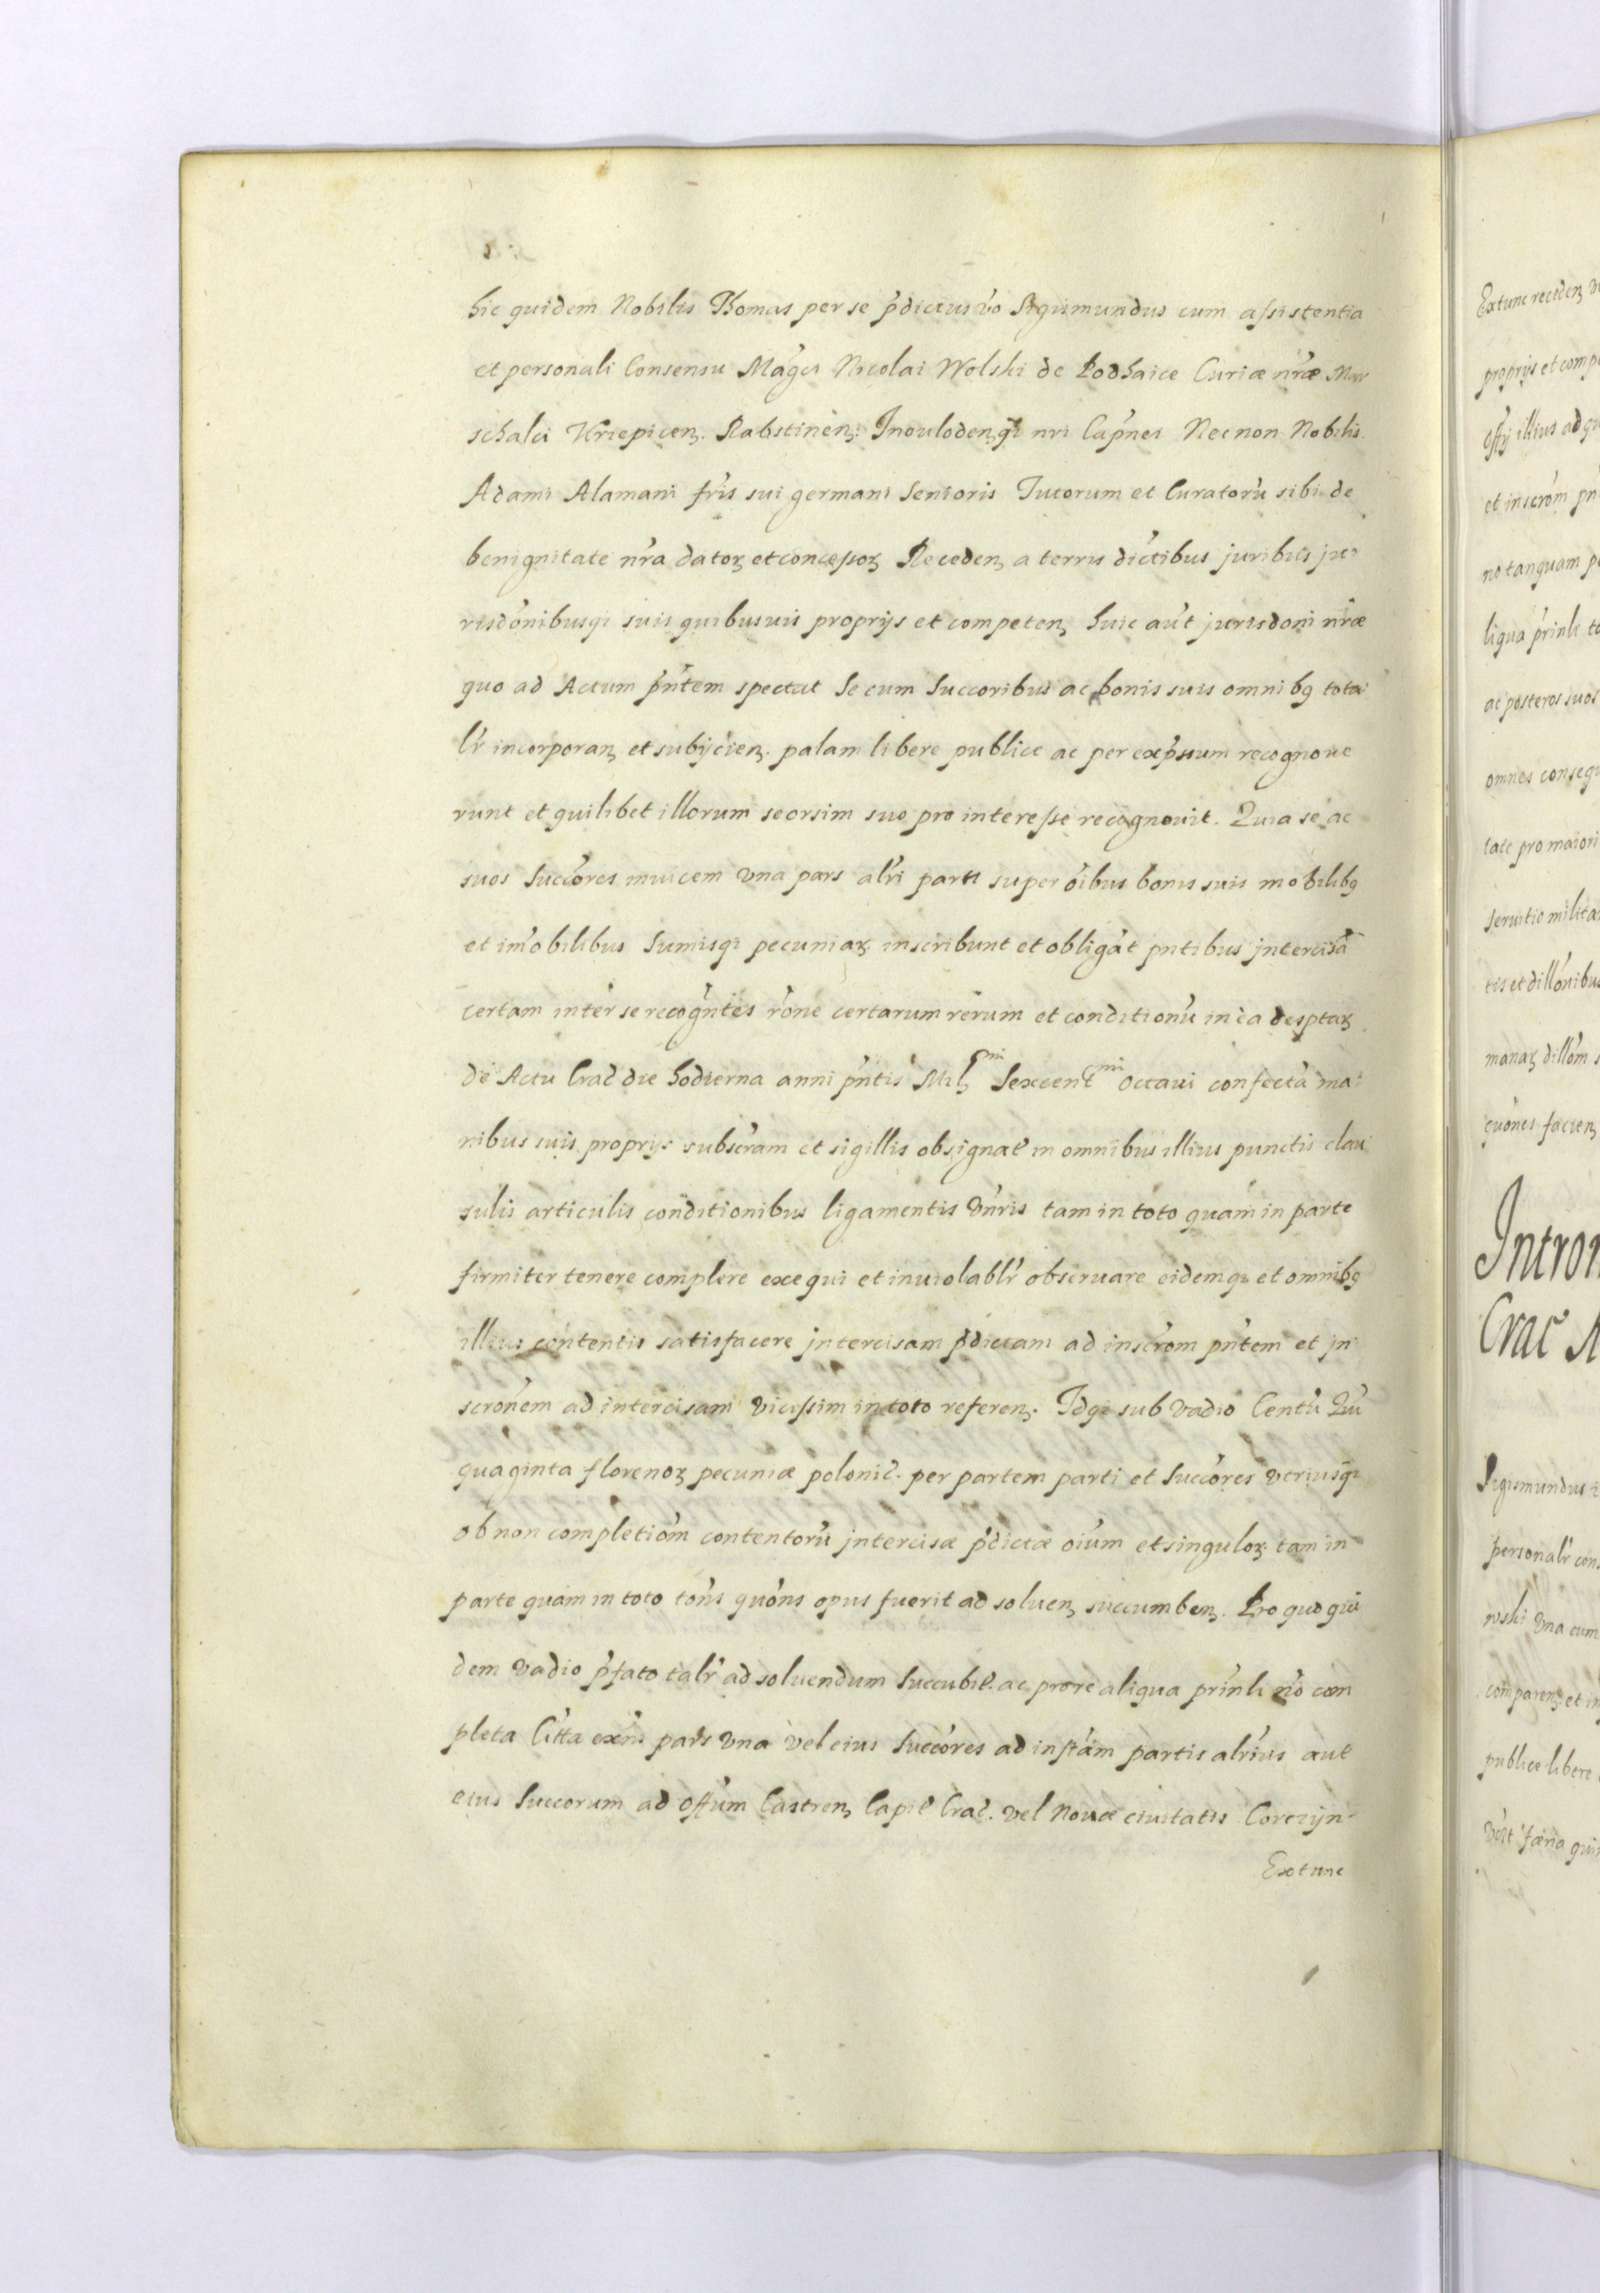 hic quidem Nobilis Thomas per se p̃dictus v̆o Sigismundus cum assistentia
et personali Consensu Mag̃ci Nicolai Wolski de Podhaice Curiæ nr̃æ Mar
schalci Krzepicen̨. Rabstinen̨. Inoulodenq̨ꝫ nri Cap̃nei Necnon Nobilis
Adami Alamani fr̃is sui germani Senioris Tutorum et Curatorũ sibi de
benignitate nr̃a datoꝝ et concessoꝝ Receden̨ a terris dic̃tibus juribus ju
risdõnibusqꝫ suis quibusuis proprijs et competen̨ huic aũt jurisdoni nr̃æ
quo ad Actum p̃ntem spectat Se cum Succoribus ac bonis suis omnibꝫ tota
lr̃ incorporan̨ et subijcien̨. palam libere publice ac per exp̃sum recognoue
runt et quilibet illorum seorsim suo pro interesse recognouit. Quia se ac
suos Succõres inuicem vna pars alr̃i parti super oĩbus bonis suis mobilibꝫ
et im̃obilibus Sumisqꝫ pecuniaꝝ inscribunt et obligãt pntibus intercisã
certam inter se recog̃ntes rõne certarum rerum et conditionũ in ea desptaꝝ
de Actu Crac̃ die hodierna anni p̃ntis Mil̨ mi Sexcent mi Octaui confectã ma
nibus suis proprijs subscr̃am et sigillis obsignat̃ in omnibus illius punctis clau
sulis articulis conditionibus ligamentis vñris tam in toto quam in parte
firmiter tenere complere exequi et inuiolablr̃ obseruare eidemqꝫ et omnibꝫ
illius contentis satisfacere intercisam p̃dictam ad inscr̃om pñtem et in
scrõnem ad intercisam vicissim in toto referen̨. Idqꝫ sub vadio Centũ Qu
quaginta florenoꝝ pecuniæ polonic̃. per partem parti et Succõres vtriusqꝫ
ob non completiõm contentorũ intercisæ p̃dictæ oĩum et singuloꝝ tam in
parte quam in toto toñs quoñs opus fuerit ad soluen̨ succumben̨. Pro quo qui
dem vadio p̃fato talr̃ ad soluendum Succubit̃. ac pro re aliqua prĩnli nõ com
pleta Cit̃ta exñs pars vna vel eius Succõres ad inst̃am partis alr̃ius aut
eius Succorum ad Offũm Castren̨ Capit̃ Crac̃. vel Nouæ ciuitatis Corczyn
Extunc